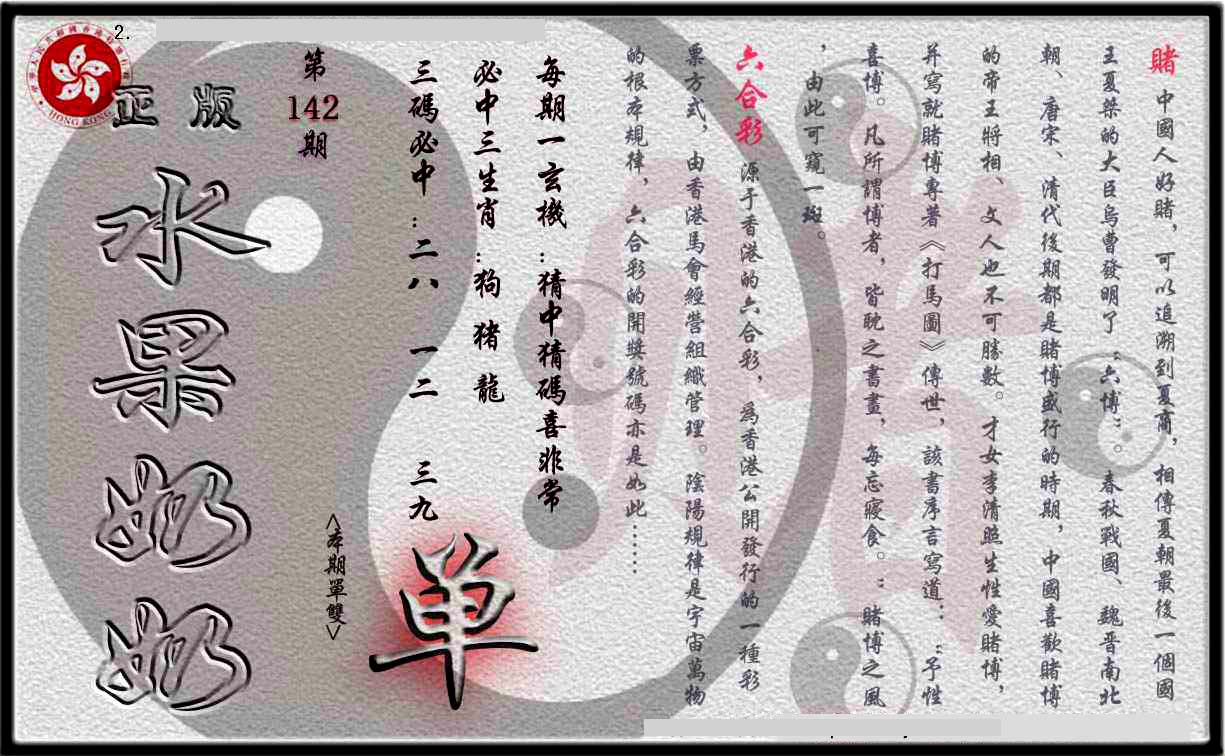 賭 中國人好賭，可以追溯到夏商，相傳夏朝最後一個國
王夏桀的大臣烏曹發明了“六博”。春秋戰國、魏晋南北
朝、唐宋、清代後期都是賭博盛行的時期，中國喜歡賭博
的帝王將相、文人也不可勝數。才女李清照生性愛賭博，
并寫就賭博專著《打馬圖》傳世，該書序言寫道：“予性
喜博。凡所謂博者，皆耽之書畫，每忘寢食。”賭博之風
，由此可窺一斑。
六合彩 源于香港的六合彩，爲香港公開發行的一種彩
票方式，由香港馬會經營組織管理。陰陽規律是宇宙萬物
的根本規律，六合彩的開獎號碼亦是如此……
每期一玄機：猜中猜碼喜非常
必中三生肖：狗 猪 龍
三碼必中：二八 一二 三九
<本期單雙>
单
第
142
期
正版
水果奶奶
2.
HONG KONG